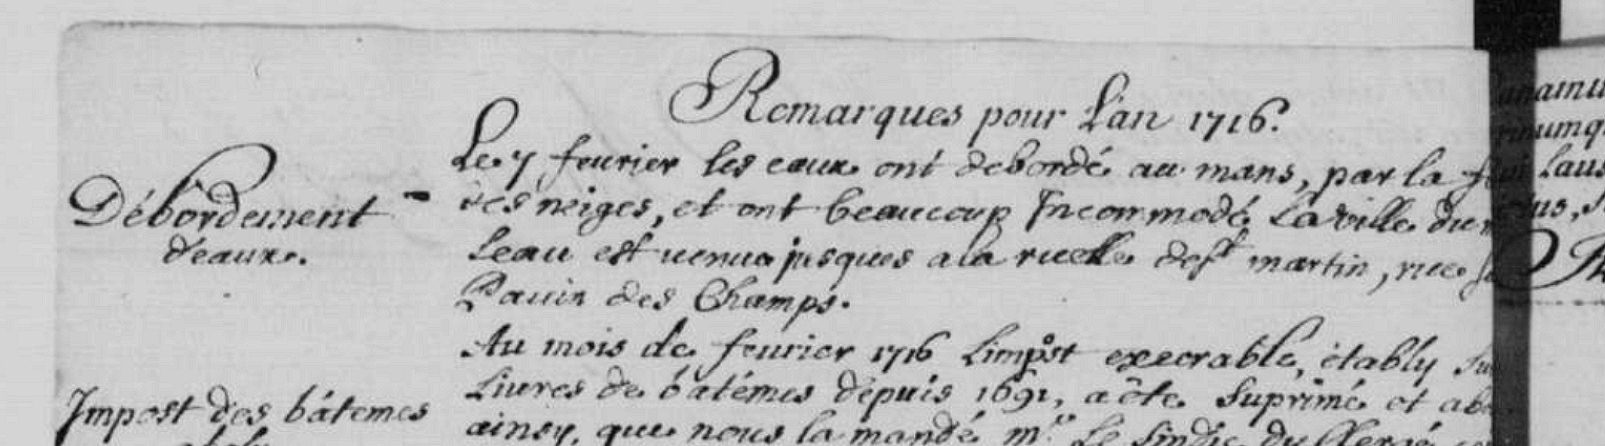 Remarques pour L'an 1716.
Le 7 feurier les eaux ont debordé au mans, par la
des neiges, et ont beaucoup Incommodé La ville du
Leau est venue jusques a la ruelle de st martin, rue
Pauin des Champs.
Débordement
d'eaux.
Au mois de feurier 1716 Limpost execrable, étably
Liures de batémes depuis 1691, a été Suprimé et
ainsy, que nous la mandé mr. Le Sindic du Clergé
Impost des bâtemes